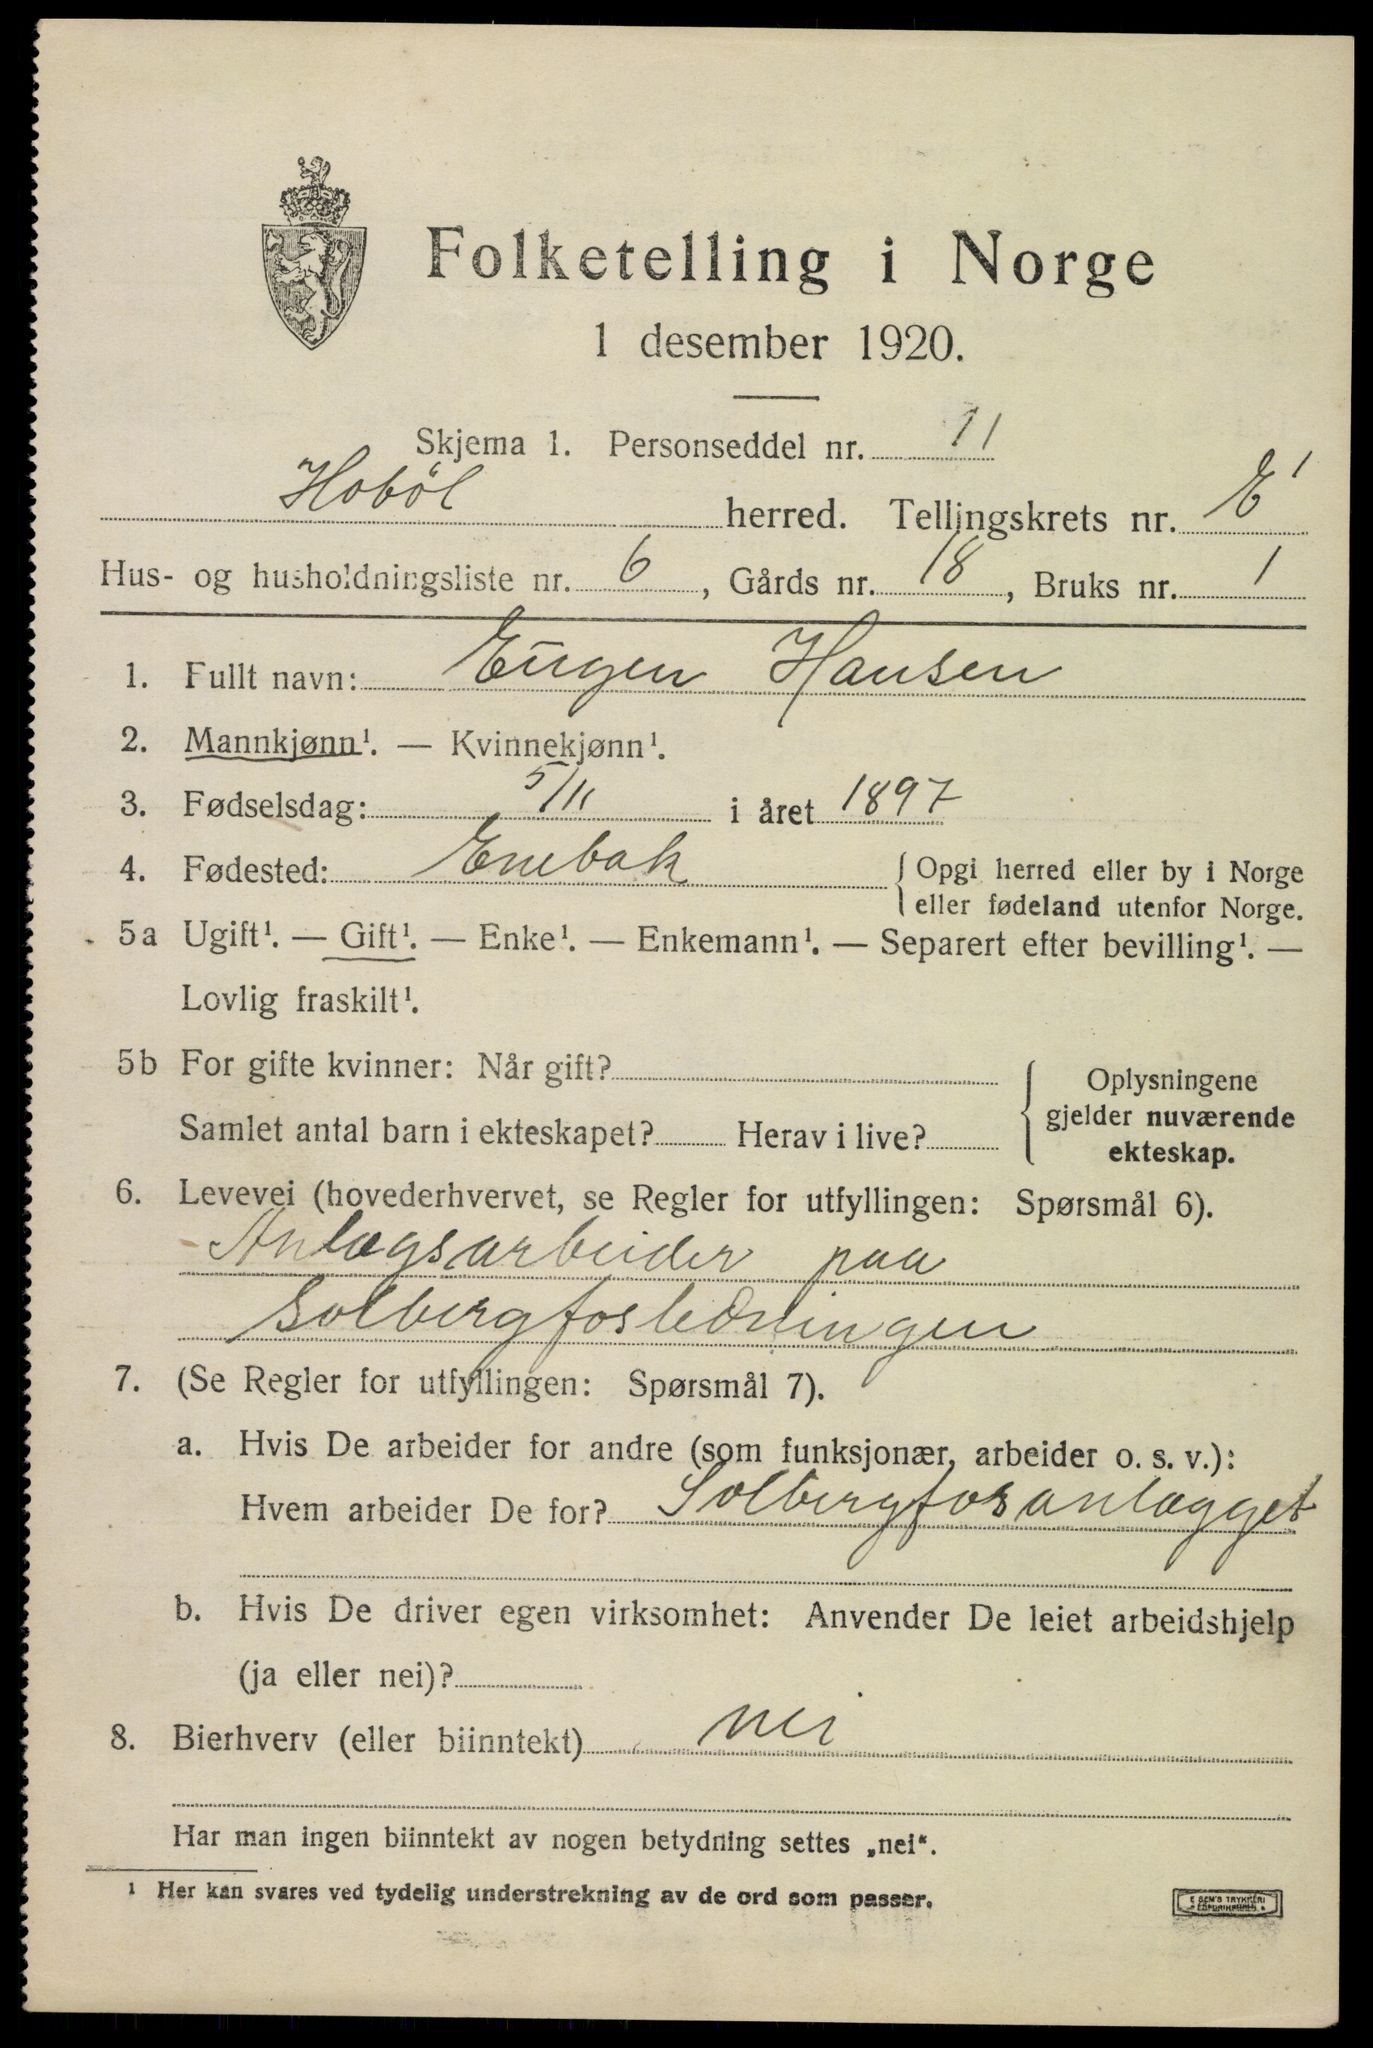 Folketelling i Norge
1 desember 1920.
Skjema 1. Personseddel nr. 11
Hobøl herred. Tellingskrets nr. E¹
Hus- og husholdningsliste nr. 6, Gårds nr. 18, Bruks nr. 1
1. Fullt navn: Eugen Hansen
2. Mannkjønn¹. — Kvinnekjønn¹.
3. Fødselsdag: 5/11 i året 1897
4. Fødested: Enebak { Opgi herred eller by i Norge
eller fødeland utenfor Norge.
5a Ugift¹. — Gift¹. — Enke¹. — Enkemann¹. — Separert efter bevilling¹. —
Lovlig fraskilt¹.
5b For gifte kvinner: Når gift? { Oplysningene
gjelder nuværende
ekteskap.
Samlet antal barn i ekteskapet? Herav i live?
6. Levevei (hovederhvervet, se Regler for utfyllingen: Spørsmål 6).
Anlægsarbeider paa
Solbergfosledningen
7. (Se Regler for utfyllingen: Spørsmål 7).
a. Hvis De arbeider for andre (som funksjonær, arbeider o. s. v.):
Hvem arbeider De for? Solbergfosanlægget
b. Hvis De driver egen virksomhet: Anvender De leiet arbeidshjelp
(ja eller nei)?
8. Bierhverv (eller biinntekt) nei
Har man ingen biinntekt av nogen betydning settes „nei“.
¹ Her kan svares ved tydelig understrekning av de ord som passer.